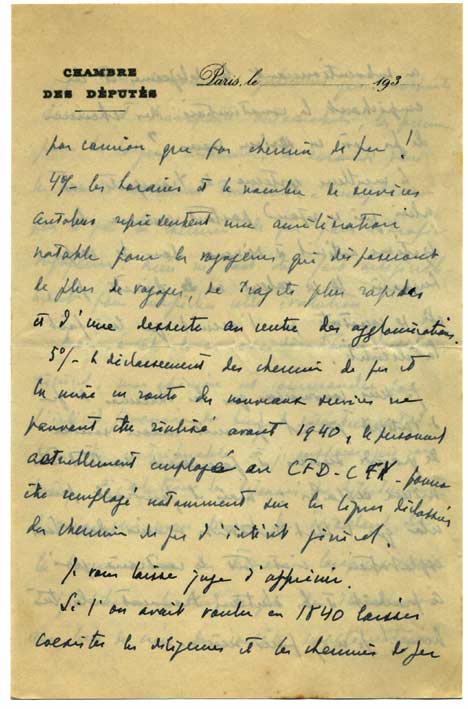 CHAMBRE
DES DÉPUTÉS
Paris, le 193
par camion que par chemin de fer !
4°/- les horaires et le nombre de services
autobus représentent une amélioration
notable pour les voyageurs qui disposeront
de plus de voyages, de trajets plus rapides
et d'une desserte au centre des agglomérations.
5°/- le déclassement des chemins de fer et
la mise en route des nouveaux services ne
pouvant être réalisé avant 1940, le personnel
actuellement employé au CFD-CFV pourra
être remployé notamment sur les lignes déclassées
des chemins de fer d'intérêt général.
Je vous laisse juge d'apprécier.
Si l'on avait voulu en 1840 laisser
coexister les diligences et les chemins de fer